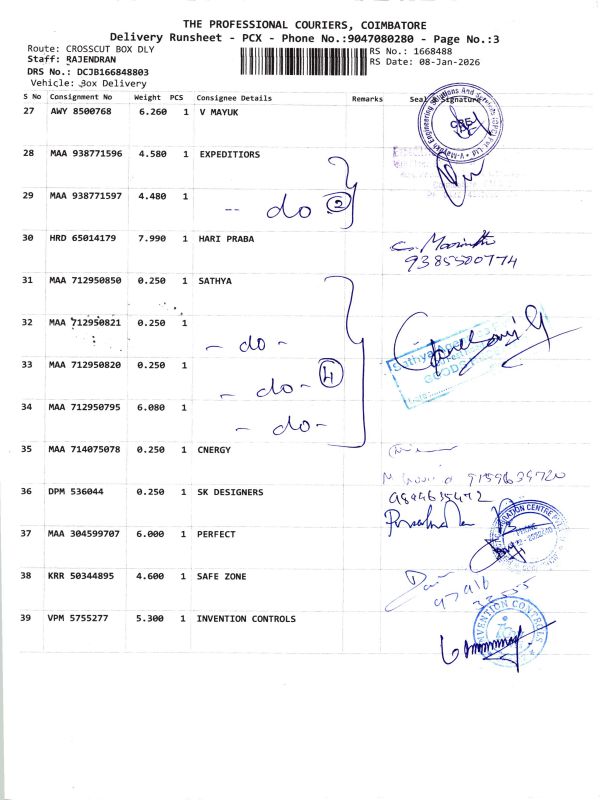 THE PROFESSIONAL COURIERS, COIMBATORE
Delivery Runsheet - PCX - Phone No.:9047080280 - Page No.:3
Route: CROSSCUT BOX DLY
RS No.: 1668488
Staff: RAJENDRAN
RS Date: 08-Jan-2026
DRS No.: DCJB166848803
Vehicle: Box Delivery
S No Consignment No Weight PCS Consignee Details Remarks Seal & Signature
27 AWY 8500768 6.260 1 V MAYUK
28 MAA 938771596 4.580 1 EXPEDITIORS
29 MAA 938771597 4.480 1 -- do 2
30 HRD 65014179 7.990 1 HARI PRABA
9385500774
31 MAA 712950850 0.250 1 SATHYA
32 MAA 712950821 0.250 1 - do -
33 MAA 712950820 0.250 1 - do - 4
34 MAA 712950795 6.080 1 - do -
35 MAA 714075078 0.250 1 CNERGY
9159639720
36 DPM 536044 0.250 1 SK DESIGNERS
37 MAA 304599707 6.000 1 PERFECT
38 KRR 50344895 4.600 1 SAFE ZONE
39 VPM 5755277 5.300 1 INVENTION CONTROLS
INVENTION CONTROLS